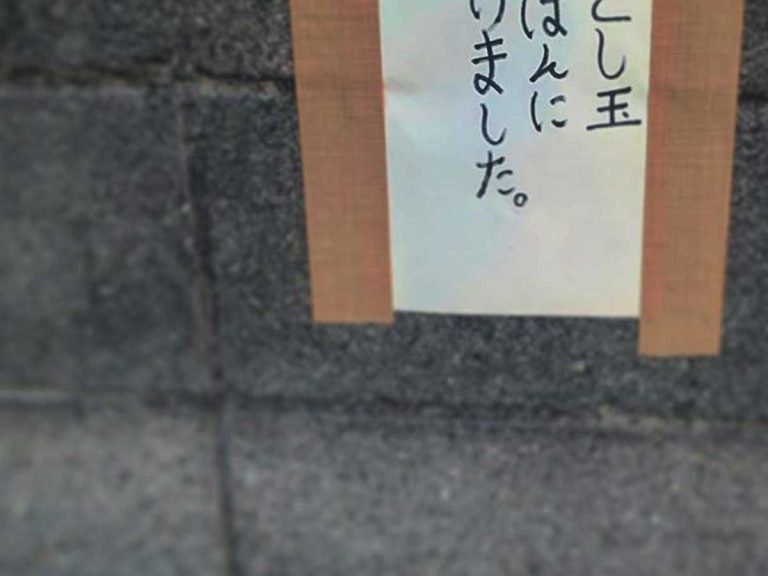 とし玉
ばんに
りました。